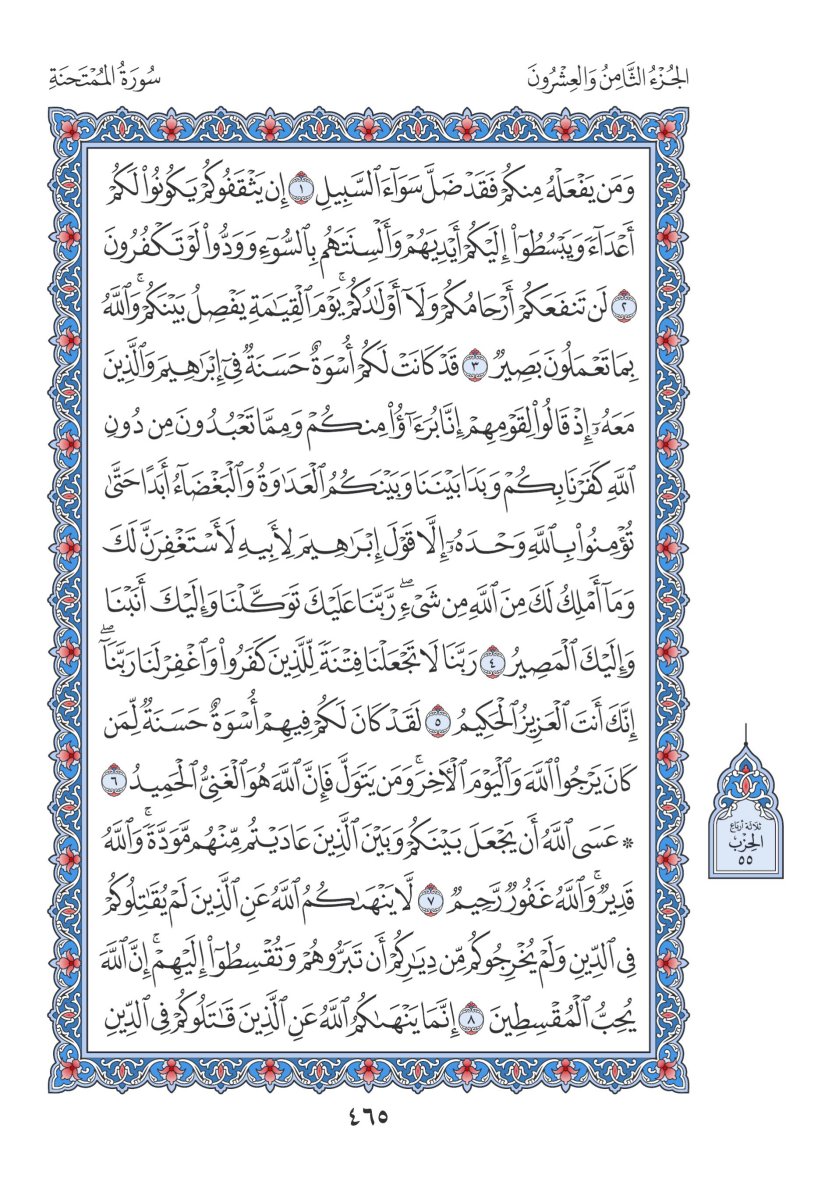 الجُزْءُ الثَّامِنُ وَالعِشْرُونَ
سُورَةُ المُمْتَحنَةِ
وَمَن يَفْعَلْهُ مِنكُمْ فَقَدْ ضَلَّ سَوَآءَ ٱلسَّبِيلِ ١ إِن يَثْقَفُوكُمْ يَكُونُوا۟ لَكُمْ
أَعْدَآءً وَيَبْسُطُوٓا۟ إِلَيْكُمْ أَيْدِيَهُمْ وَأَلْسِنَتَهُم بِٱلسُّوٓءِ وَوَدُّوا۟ لَوْ تَكْفُرُونَ
٢ لَن تَنفَعَكُمْ أَرْحَامُكُمْ وَلَآ أَوْلَٰدُكُمْ ۚ يَوْمَ ٱلْقِيَٰمَةِ يَفْصِلُ بَيْنَكُمْ ۚ وَٱللَّهُ
بِمَا تَعْمَلُونَ بَصِيرٌ ٣ قَدْ كَانَتْ لَكُمْ أُسْوَةٌ حَسَنَةٌ فِىٓ إِبْرَٰهِيمَ وَٱلَّذِينَ
مَعَهُۥٓ إِذْ قَالُوا۟ لِقَوْمِهِمْ إِنَّا بُرَءَٰٓؤُا۟ مِنكُمْ وَمِمَّا تَعْبُدُونَ مِن دُونِ
ٱللَّهِ كَفَرْنَا بِكُمْ وَبَدَا بَيْنَنَا وَبَيْنَكُمُ ٱلْعَدَٰوَةُ وَٱلْبَغْضَآءُ أَبَدًا حَتَّىٰ
تُؤْمِنُوا۟ بِٱللَّهِ وَحْدَهُۥٓ إِلَّا قَوْلَ إِبْرَٰهِيمَ لِأَبِيهِ لَأَسْتَغْفِرَنَّ لَكَ
وَمَآ أَمْلِكُ لَكَ مِنَ ٱللَّهِ مِن شَىْءٍ ۖ رَّبَّنَا عَلَيْكَ تَوَكَّلْنَا وَإِلَيْكَ أَنَبْنَا
وَإِلَيْكَ ٱلْمَصِيرُ ٤ رَبَّنَا لَا تَجْعَلْنَا فِتْنَةً لِّلَّذِينَ كَفَرُوا۟ وَٱغْفِرْ لَنَا رَبَّنَآ ۖ
إِنَّكَ أَنتَ ٱلْعَزِيزُ ٱلْحَكِيمُ ٥ لَقَدْ كَانَ لَكُمْ فِيهِمْ أُسْوَةٌ حَسَنَةٌ لِّمَن
كَانَ يَرْجُوا۟ ٱللَّهَ وَٱلْيَوْمَ ٱلْءَاخِرَ ۚ وَمَن يَتَوَلَّ فَإِنَّ ٱللَّهَ هُوَ ٱلْغَنِىُّ ٱلْحَمِيدُ ٦
۞ عَسَى ٱللَّهُ أَن يَجْعَلَ بَيْنَكُمْ وَبَيْنَ ٱلَّذِينَ عَادَيْتُم مِّنْهُم مَّوَدَّةً ۚ وَٱللَّهُ
قَدِيرٌ ۚ وَٱللَّهُ غَفُورٌ رَّحِيمٌ ٧ لَّا يَنْهَىٰكُمُ ٱللَّهُ عَنِ ٱلَّذِينَ لَمْ يُقَٰتِلُوكُمْ
فِى ٱلدِّينِ وَلَمْ يُخْرِجُوكُم مِّن دِيَٰرِكُمْ أَن تَبَرُّوهُمْ وَتُقْسِطُوٓا۟ إِلَيْهِمْ ۚ إِنَّ ٱللَّهَ
يُحِبُّ ٱلْمُقْسِطِينَ ٨ إِنَّمَا يَنْهَىٰكُمُ ٱللَّهُ عَنِ ٱلَّذِينَ قَٰتَلُوكُمْ فِى ٱلدِّينِ
ثلاثة أرباع
الحِزْب
٥٥
٤٦٥